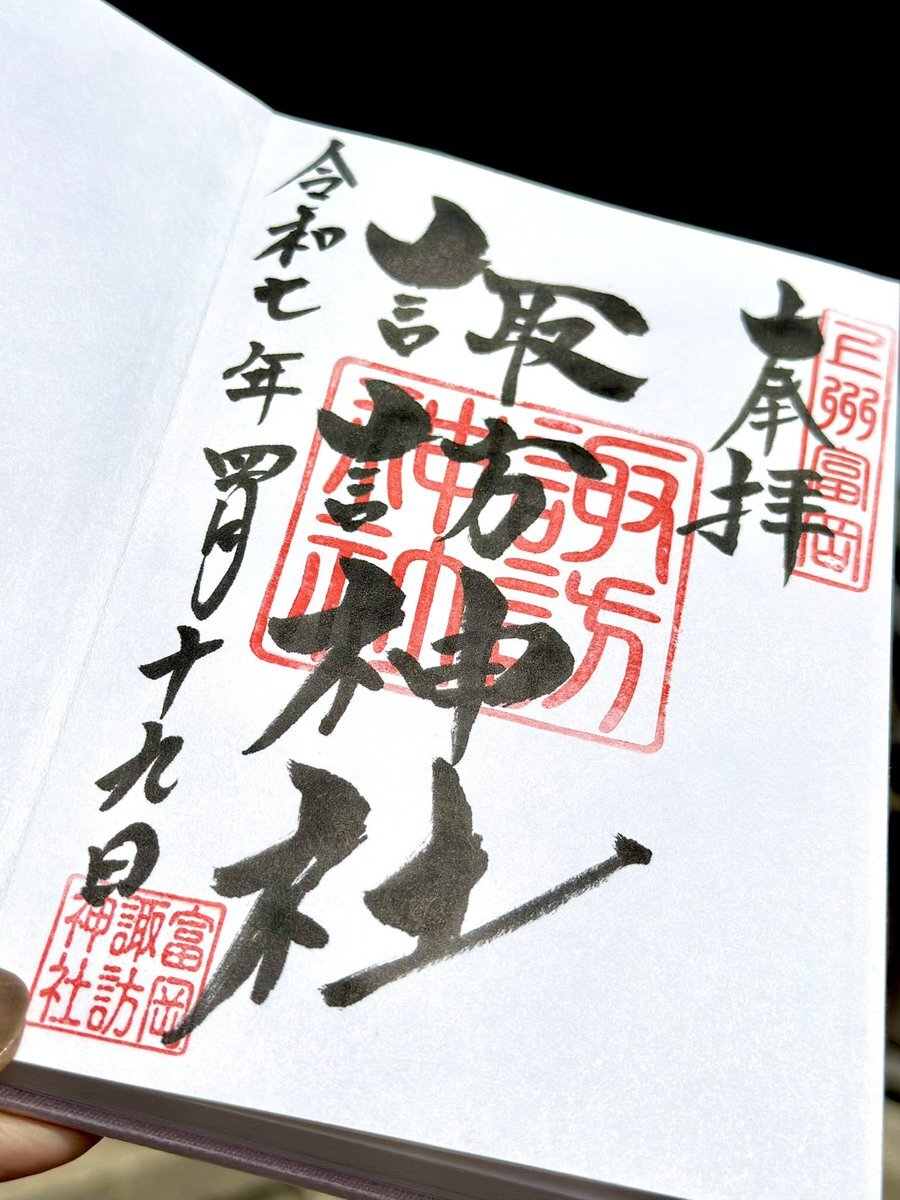 奉拝
上州富岡
諏訪神社
諏訪神社
令和七年四月十九日
富岡諏訪神社